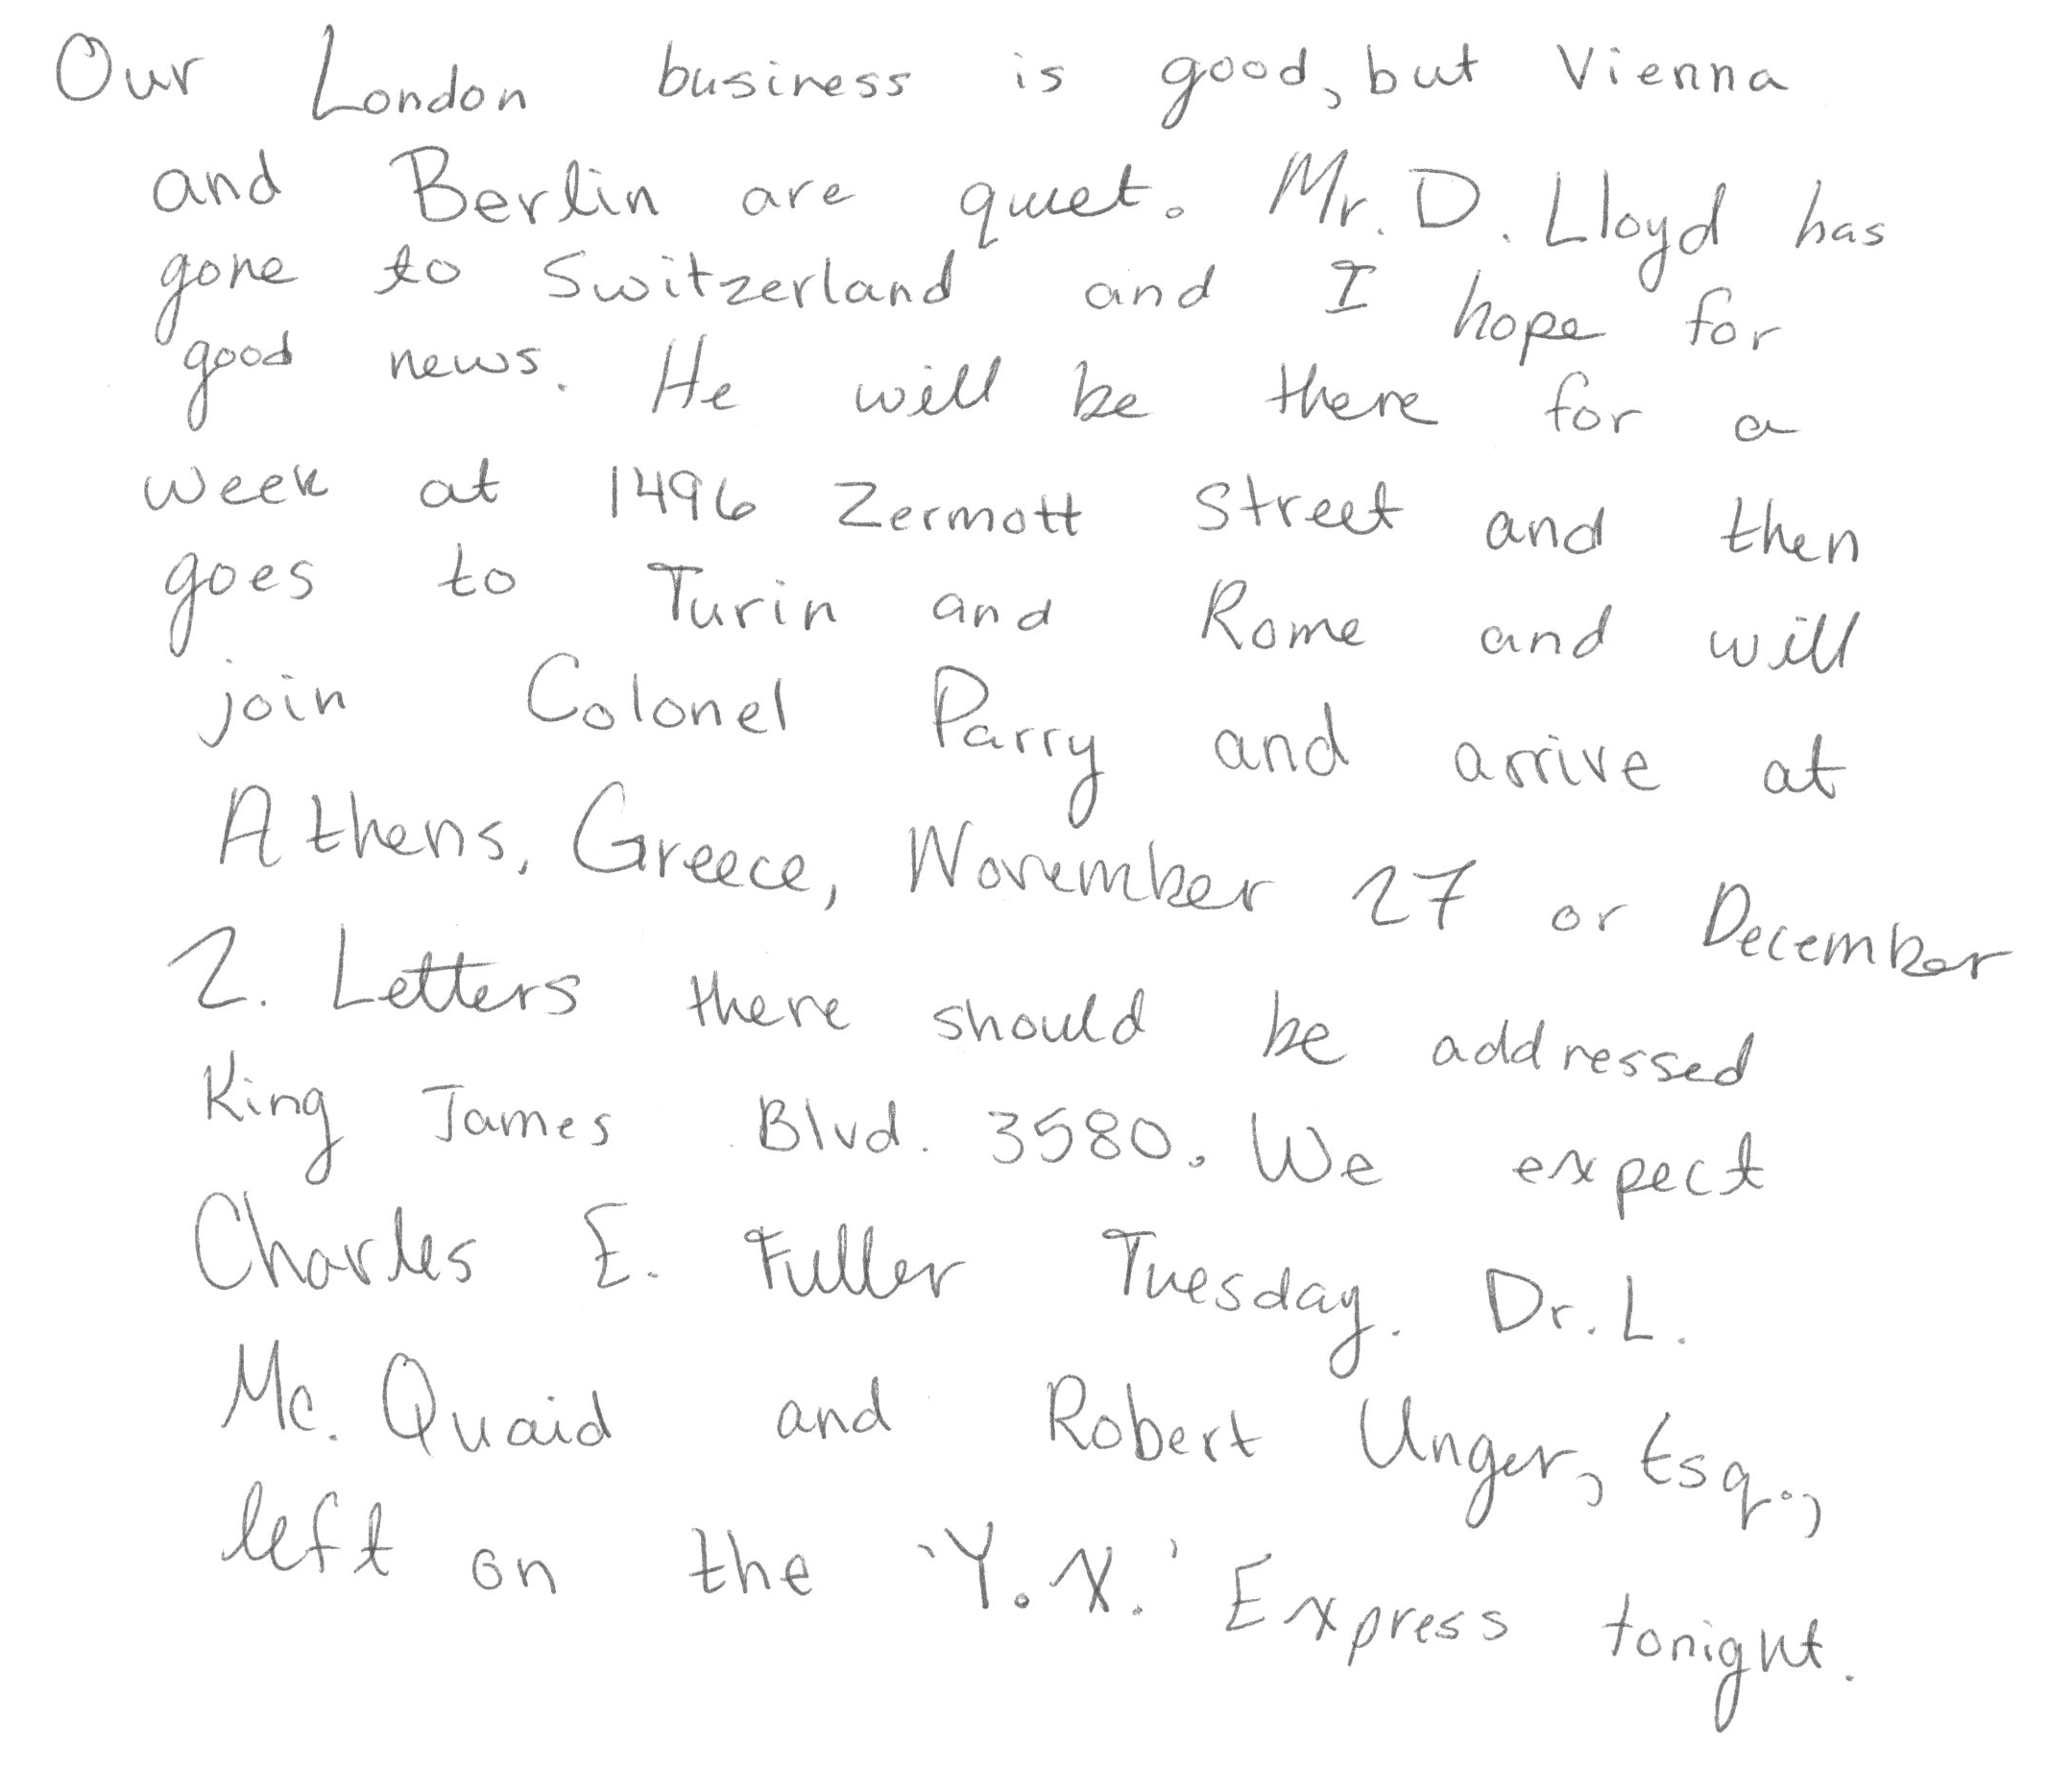 Our London business is good, but Vienna
and Berlin are quiet. Mr. D. Lloyd has
gone to Switzerland and I hope for
good news. He will be there for a
week at 1496 Zermott Street and then
goes to Turin and Rome and will
join Colonel Parry and arrive at
Athens, Greece, November 27 or December
2. Letters there should be addressed
King James Blvd. 3580. We expect
Charles E. Fuller Tuesday. Dr. L.
Mc. Quaid and Robert Unger, Esq.,
left on the 'Y.X.' Express tonight.